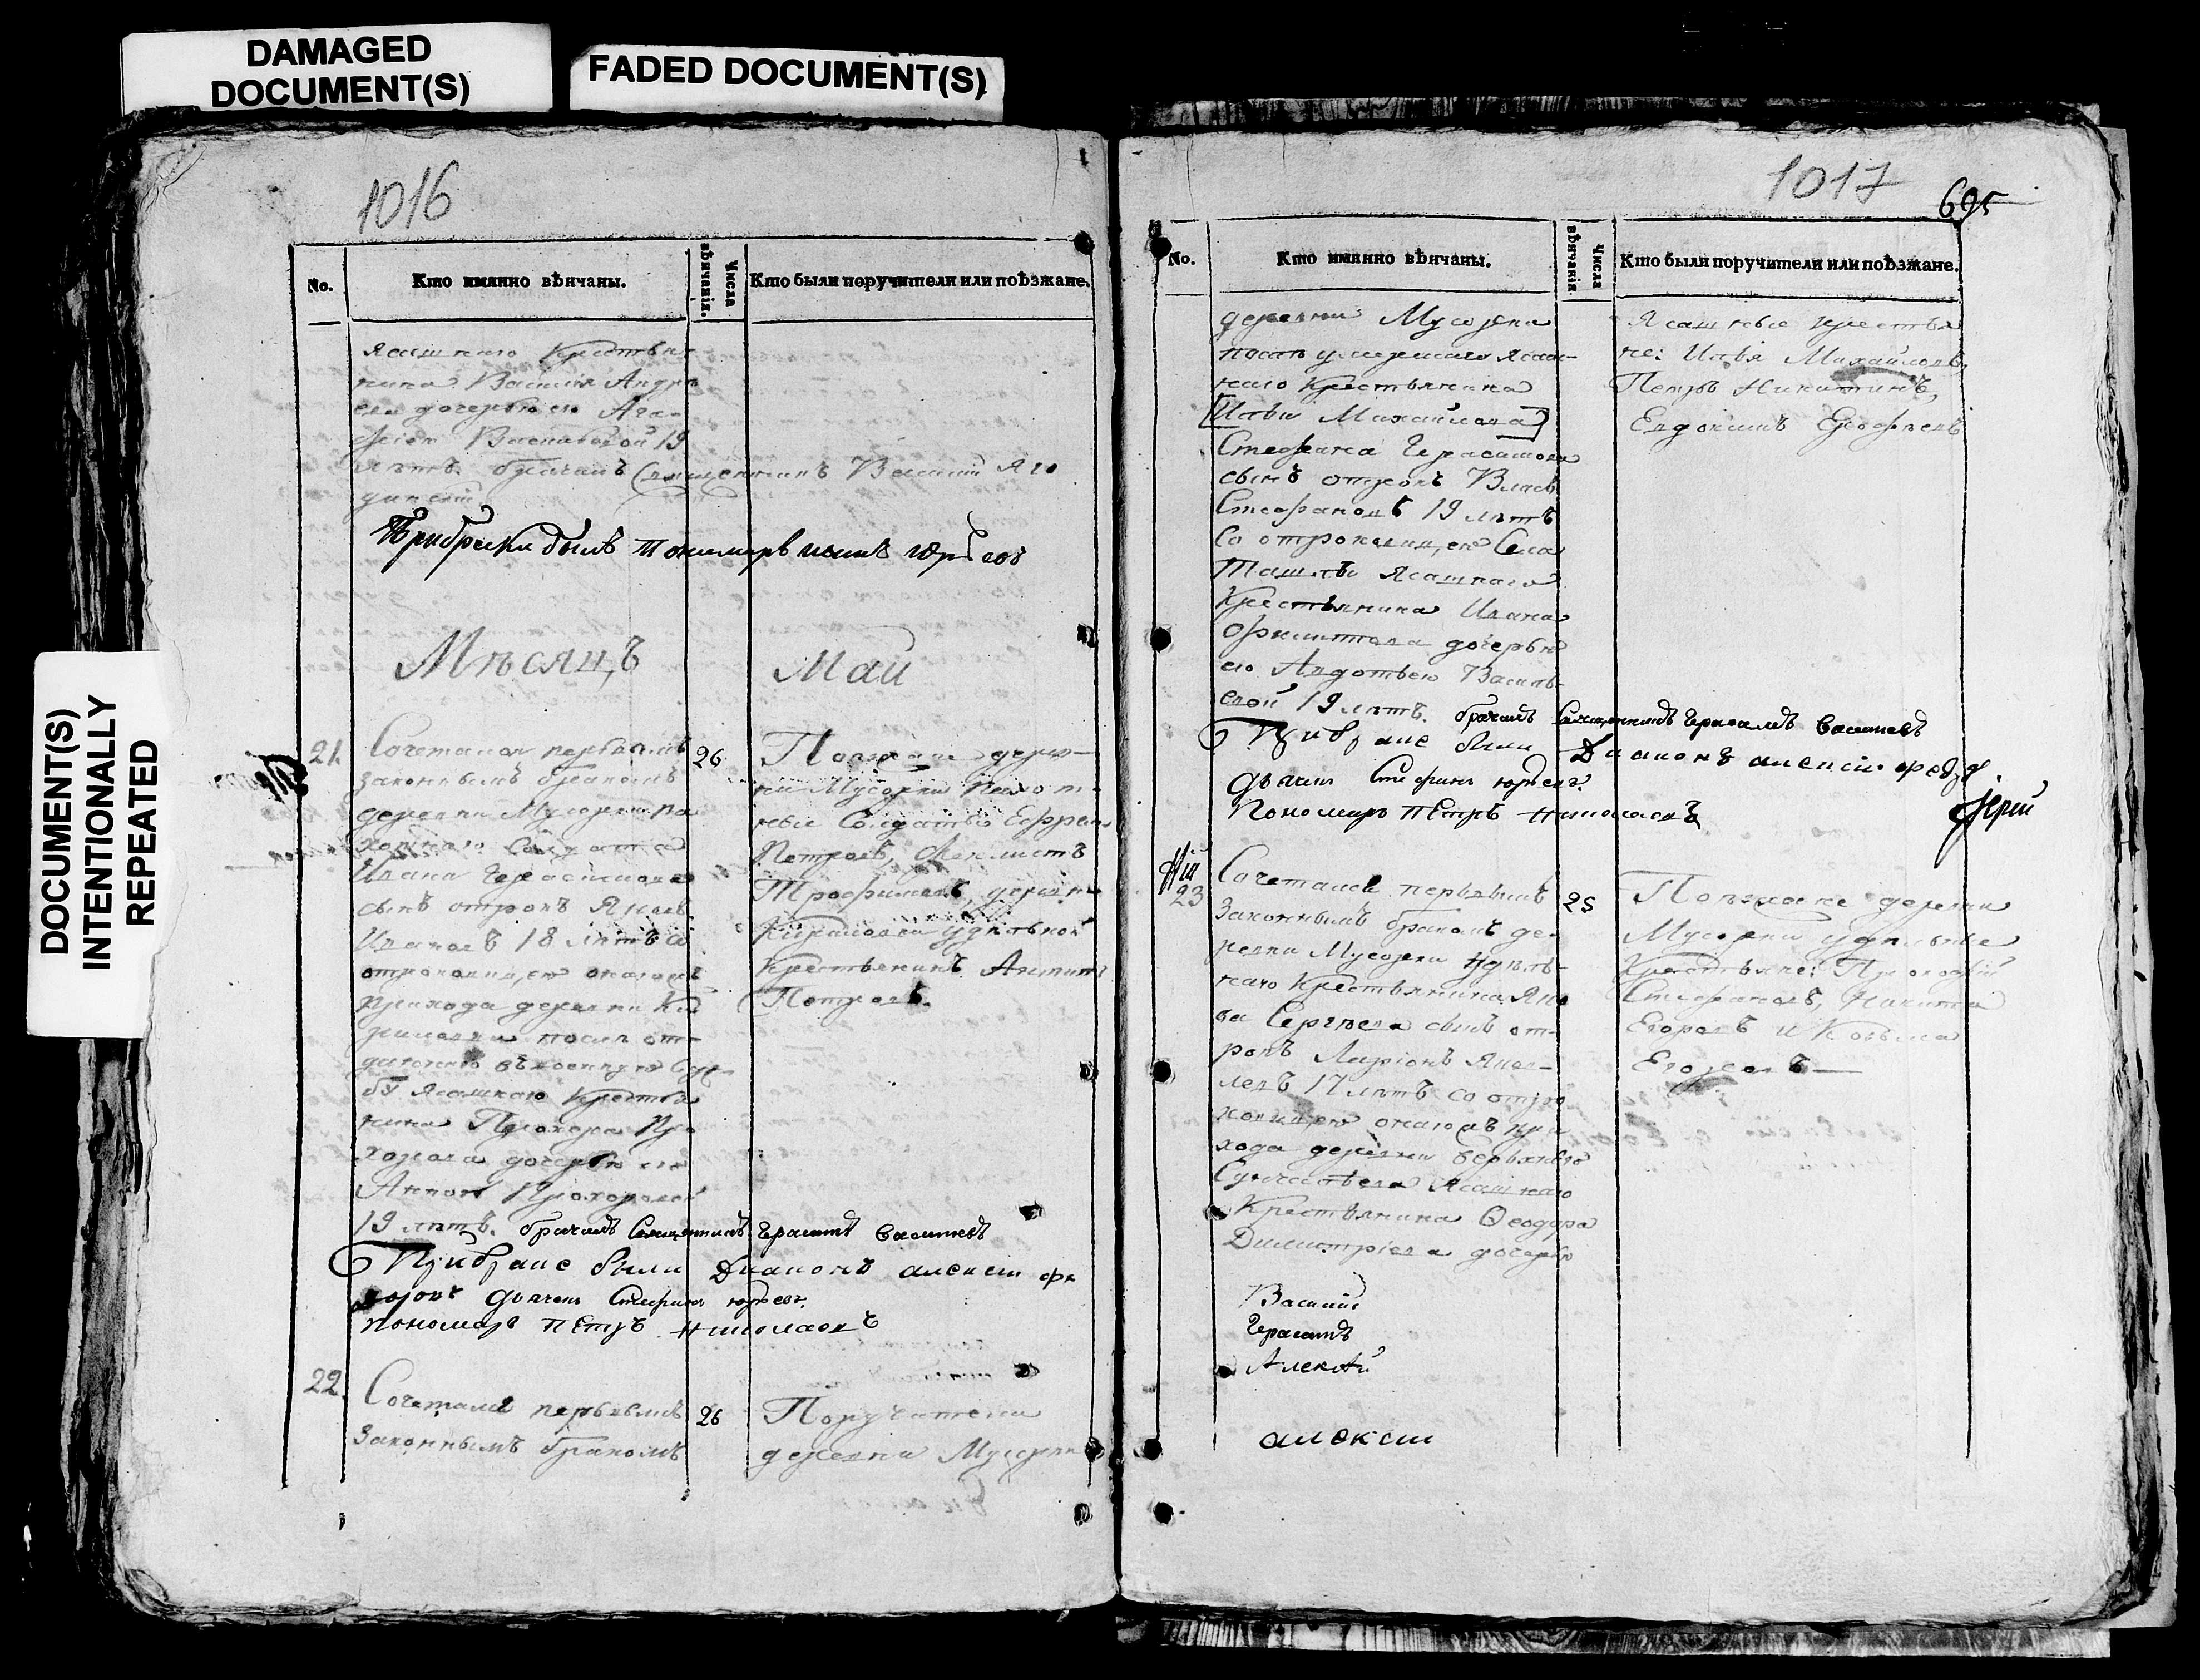 DAMAGED
DOCUMENT(S)
FADED DOCUMENT(S)
DOCUMENT(S)
INTENTIONALLY
REPEATED
1016
No.
Кто имянно вѣнчаны.
Числа вѣнчанія.
Кто были поручители или поѣзжане.
Ясашнаго Крестья-
нина Василія Андре
ева дочерью его Ага-
Васильевой 19
лѣтъ. бракъ Священникъ Василій Яго
При браке былъ Пономарь
Мѣсяцъ Май
21.
Сочетался первымъ
законнымъ бракомъ
деревни Мусорки па
хотнаго Солдата
Ивана Герасимова
сынъ отрокъ Яковъ
Ивановъ 18 лѣтъ съ
отроковицею онагожъ
прихода деревни Ки
риловки послѣ от-
даннаго въ военную Слу
бу Ясашнаго Крестья
нина Прохора Про
хорова дочерью его
Анною Прохоровой
19 лѣтъ. бракъ Священникъ Герасимъ Васильевъ
При браке были Диаконъ алексеи фе
доровъ дьячекъ Стефанъ юрьевъ.
пономарь пЕтръ Николаевъ
26
Поезжане дерев-
ни Мусорки Пахот-
ные Солдаты Ефремъ
Петровъ,
Трофимовъ, деревни
Кириловки удельной
Крестьенинъ Антипъ
Петровъ.
22.
Сочетался первымъ
Законнымъ бракомъ
26
Поручители
деревни Мусорки
1017
695
No.
Кто имянно вѣнчаны.
Числа вѣнчанія.
Кто были поручители или поѣзжане.
деревни Мусорки
послѣ умершаго Ясаш-
наго Крестьянина
[Ильи Михайлова]
Стефана Герасимова
сынъ отрокъ Власъ
Стефановъ 19 лѣтъ
Со отроковицею Села
Ташлы Ясашнаго
Крестьянина Ивана
Филиппова дочерью
его Авдотьею Василь-
евой 19 лѣтъ. бракъ Священникъ Герасимъ Васильевъ
При браке были Диаконъ алексеи федо
дьячекъ Стефанъ юрьевъ.
Пономарь пЕтръ Николаевъ
Ясашные крестья
не: Илья Михайловъ,
Петръ Никитинъ,
Евдокимъ
Іерей
23
Сочетался первымъ
Законнымъ бракомъ де-
ревни Мусорки Удѣль-
наго Крестьянина Яко
ва Сергѣева сынъ от-
рокъ Ларіонъ Яков-
левъ 17 лѣтъ со отро
ковицею онагожъ при
хода деревни верхняго
Ясашнаго
Крестьянина Ѳеодора
Димитріева дочерью
25
Поезжане деревни
Мусорки удельные
Крестьяне: Прокофій
Стефановъ, Никита
Егоровъ и Козьма
Егоровъ —
Василий
Герасимъ
Алексѣй
алексеи